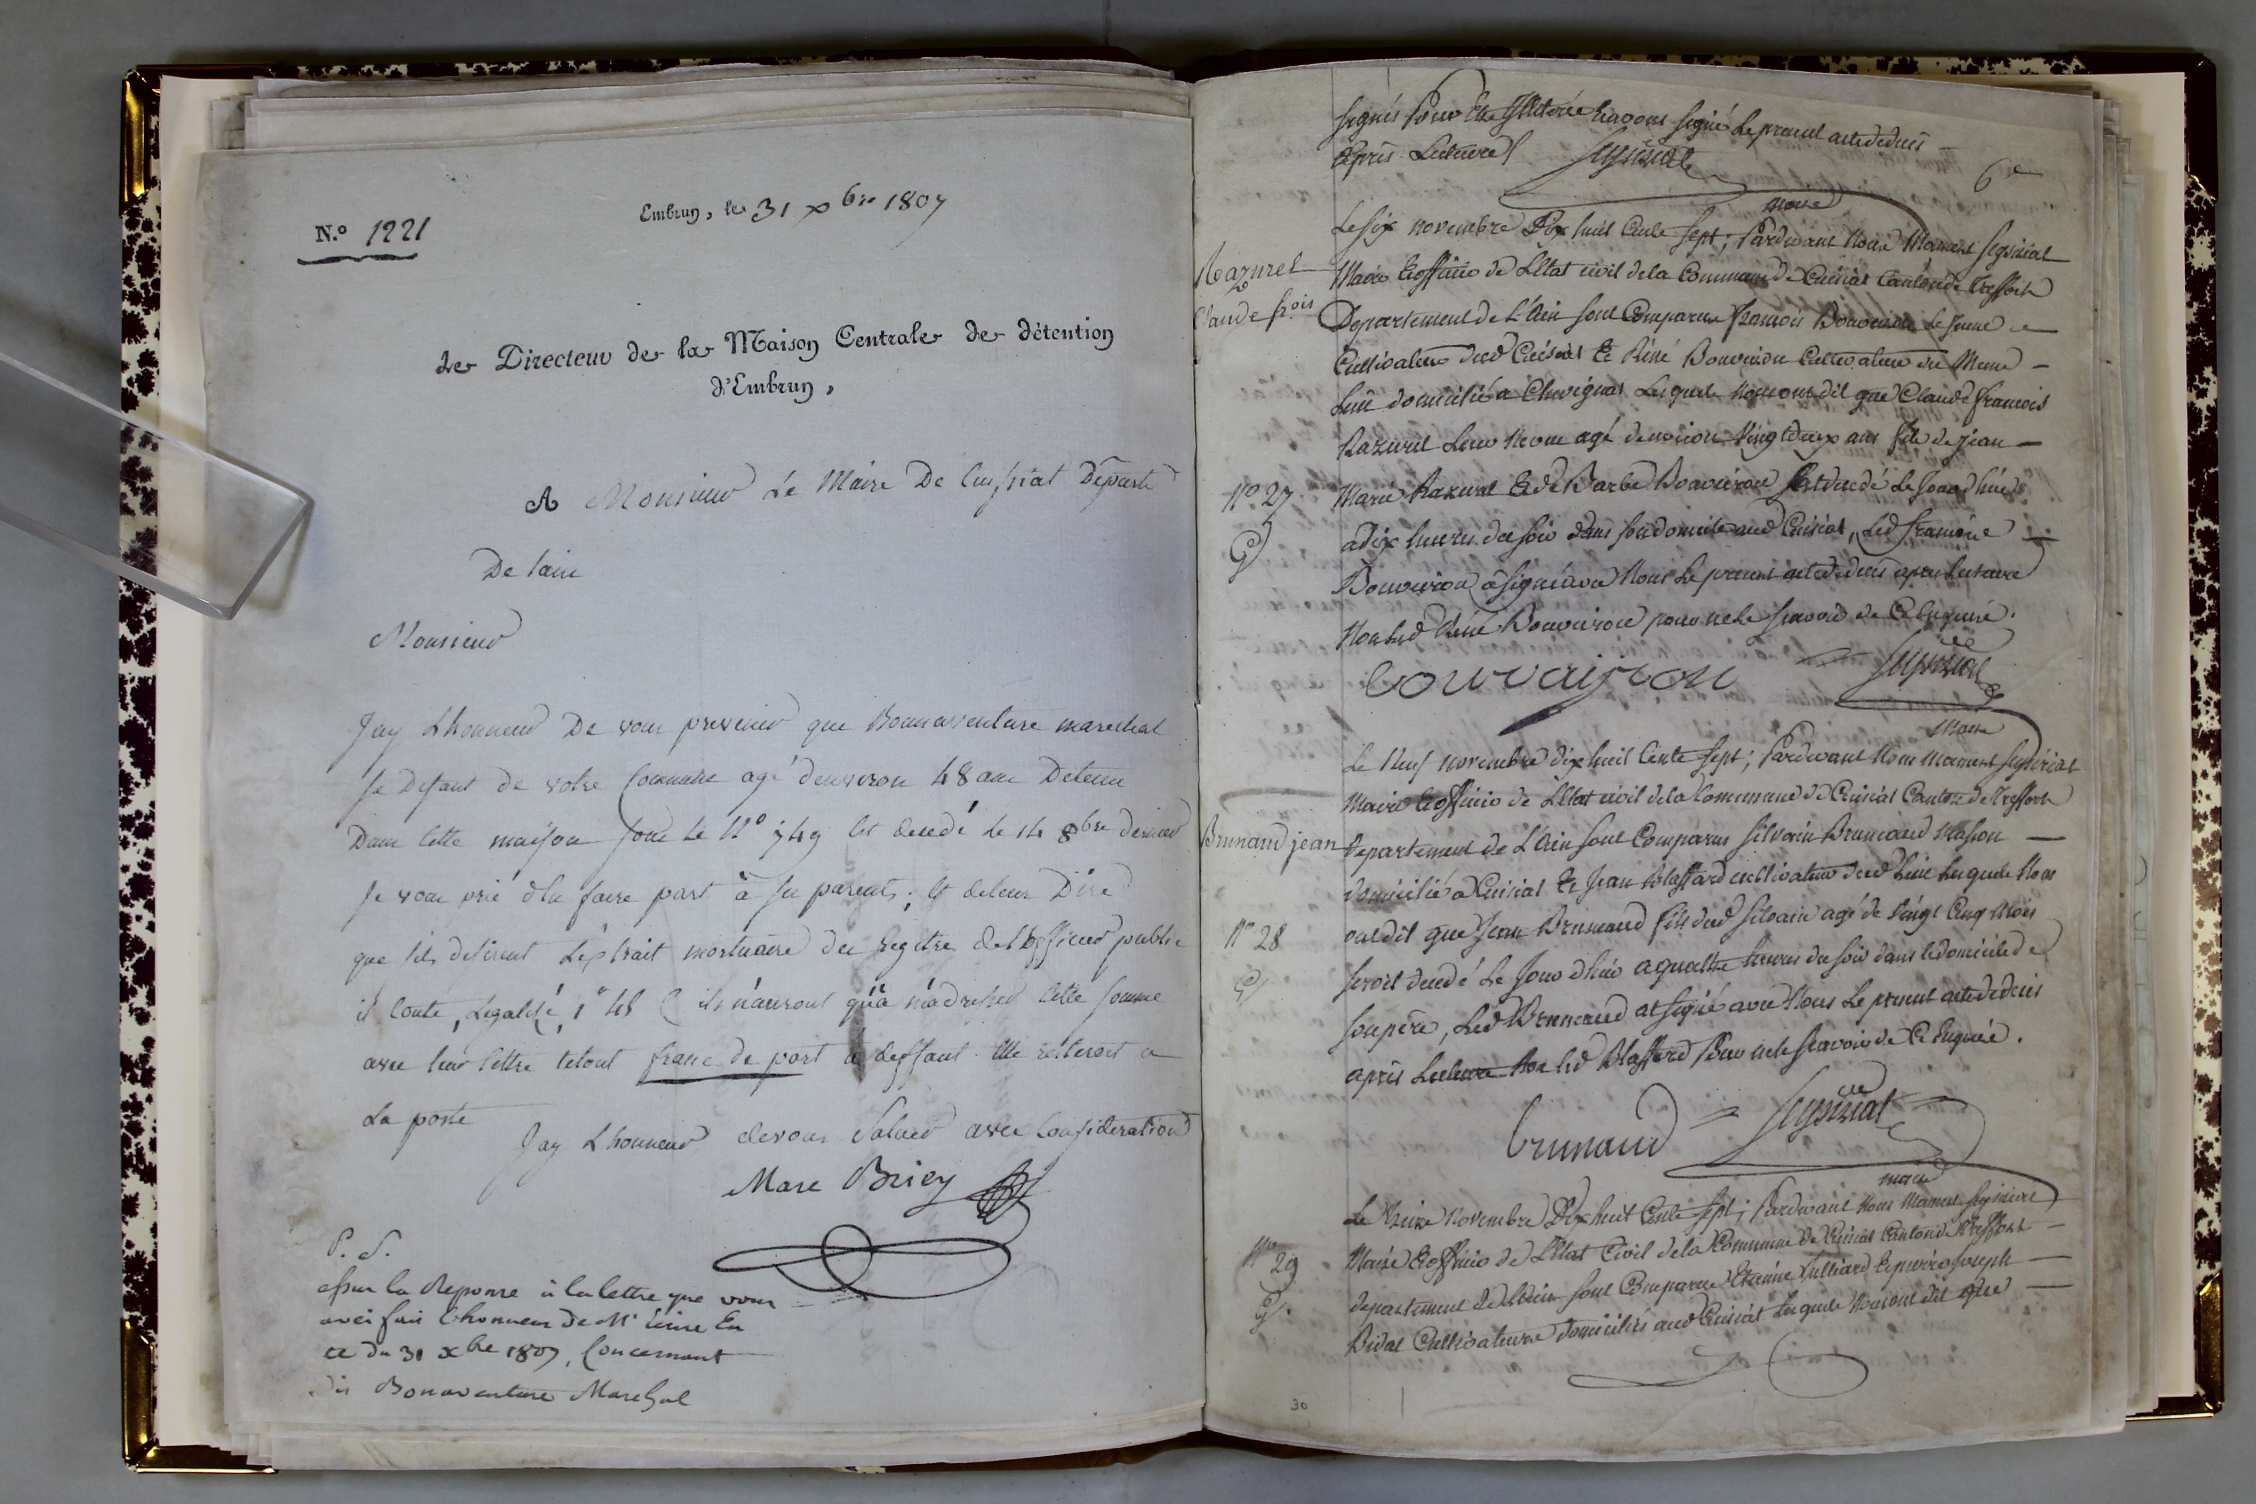 N.º 1221
Embrun, le 31 xbre 1807
Le Directeur de la Maison Centrale de détention
d'Embrun,
A Monsieur Le Maire De Cuisiat Departt
De lain
Monsieur
Jay Lhonneur De vous prevenir que Bonnaventure marechal
De votre Commune agé denviron 48 ans Detenu
Dans Cette maison sous le N° 749 Est decedé le 14 8bre dernier
Je vous prie d'En faire part à ses parents, et deleur Dire
que s'ils desirent L'extrait mortuaire du Registre de l'officier public
il Coute, Legalisé, 1" 48 C ils n'auront qu'à m'adresser Cette somme
avec leur lettre letout franc de port a deffaut Elle resteroit a
La poste
Jay Lhonneur devous Saluer avec Consideration
Marc Briey
P. S.
la Reponse à la lettre que vous
avez fais l'honneur de M' écrire En
ce du 31 xbre 1807, Concernant
Bonaventure Marechal
signés Pour Etre Illiterée havons signé Le present acte dedecès
après Lecture
6e
maire
Le six novembre Dix huit Cents sept; Pardevant Nous
Razurel
Claude frois
Maire Et officier de L'Etat civil dela Commune de Cuisiat Canton de Treffort
Departement de L'Ain sont Comparus François Bouvairon Le Jeune
Cultivateur dud Cuisiat Et Réné Bouvairon Cultivateur du Meme
Lieu domicilié a Chevignat Lesquels Nous ont dit que Claude francois
Razurel Leur Neveu agé denviron Vingt deux ans fils de Jean
N° 27
Marie Razurel Et de Barbe Bouvairon Est decedé Le Jour d'hier
a dix heures du soir dans son domicile aud Cuisiat, Led François
Bouvairon a signé avec Nous Le present acte dedecès après Lecture
Non Led Réné Bouvairon pour ne le scavoir de Ce Enquis.
bouvairon
maire
Le Neuf novembre dix huit Cents sept; Pardevant Nous
Maire Et officier de L'Etat civil dela Commune de Cuisiat Canton de Treffort
Brunaud jean
Departement de L'Ain sont Comparus Silvain Brunaud Masson
domicilié a Cuisiat Et Jean Blaffard cultivateur dud Lieu Lesquels Nous
N° 28
ont dit que Jean Brunaud fils dud Silvain agé de Vingt Cinq Mois
seroit decedé Le Jour d'hier a quatre heures du soir dans le domicile de
son père, Led Brunaud at signé avec Nous Le present acte dedecès
après Lecture Non Led Blaffard Pour ne le scavoir de Ce Enquis.
brunaud
maire
Le Novembre Dix huit Cents sept; Pardevant Nous
N° 29
Maire Et officier de L'Etat Civil dela Commune de Cuisiat Canton de Treffort
departement de L'Ain sont Comparus Etienne Vulliard Et pierre Joseph
Bidal Cultivateurs domiciliés aud Cuisiat Lesquels Nous ont dit que
30